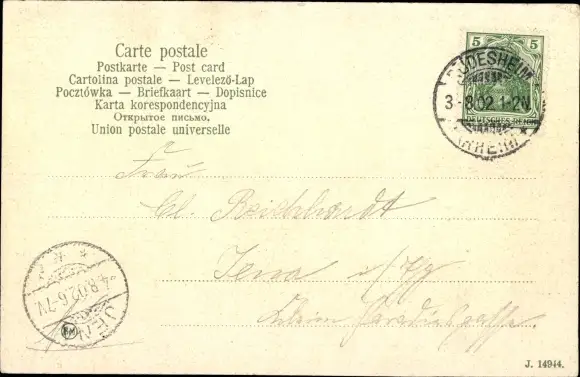 Carte postale
Postkarte — Post card
Cartolina postale — Levelező-Lap
Pocztówka — Briefkaart — Dopisnice
Karta korespondencyjna
Открытое письмо.
Union postale universelle
5 5
DEUTSCHES REICH
RÜDESHEIM
3-8.02.1-2N.
(RHEIN)
Frau
Cl. Reichhardt
Jena
JENA
4.8.02.6-7V.
J. 14944.